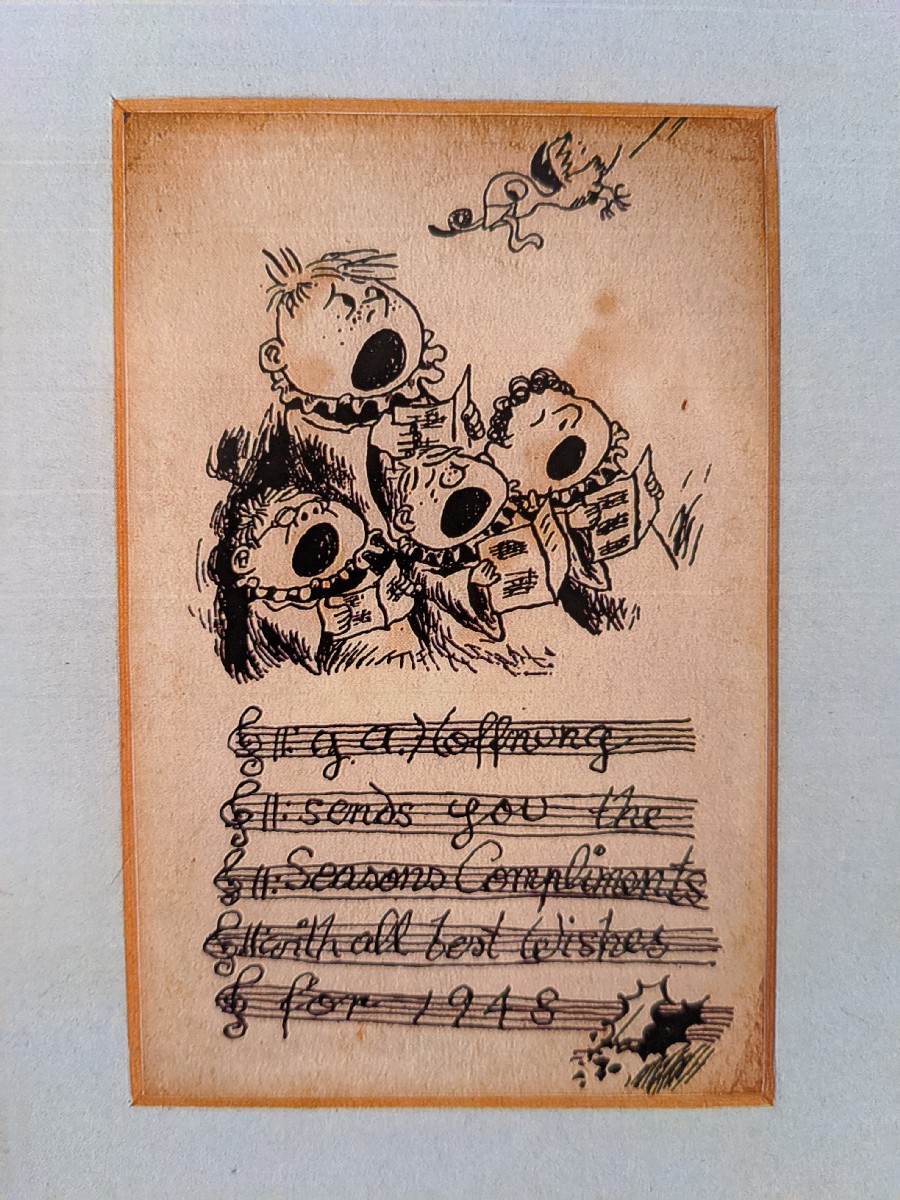 g. a. Hoffnung
sends you the
Seasons Compliments
with all best Wishes
for 1948